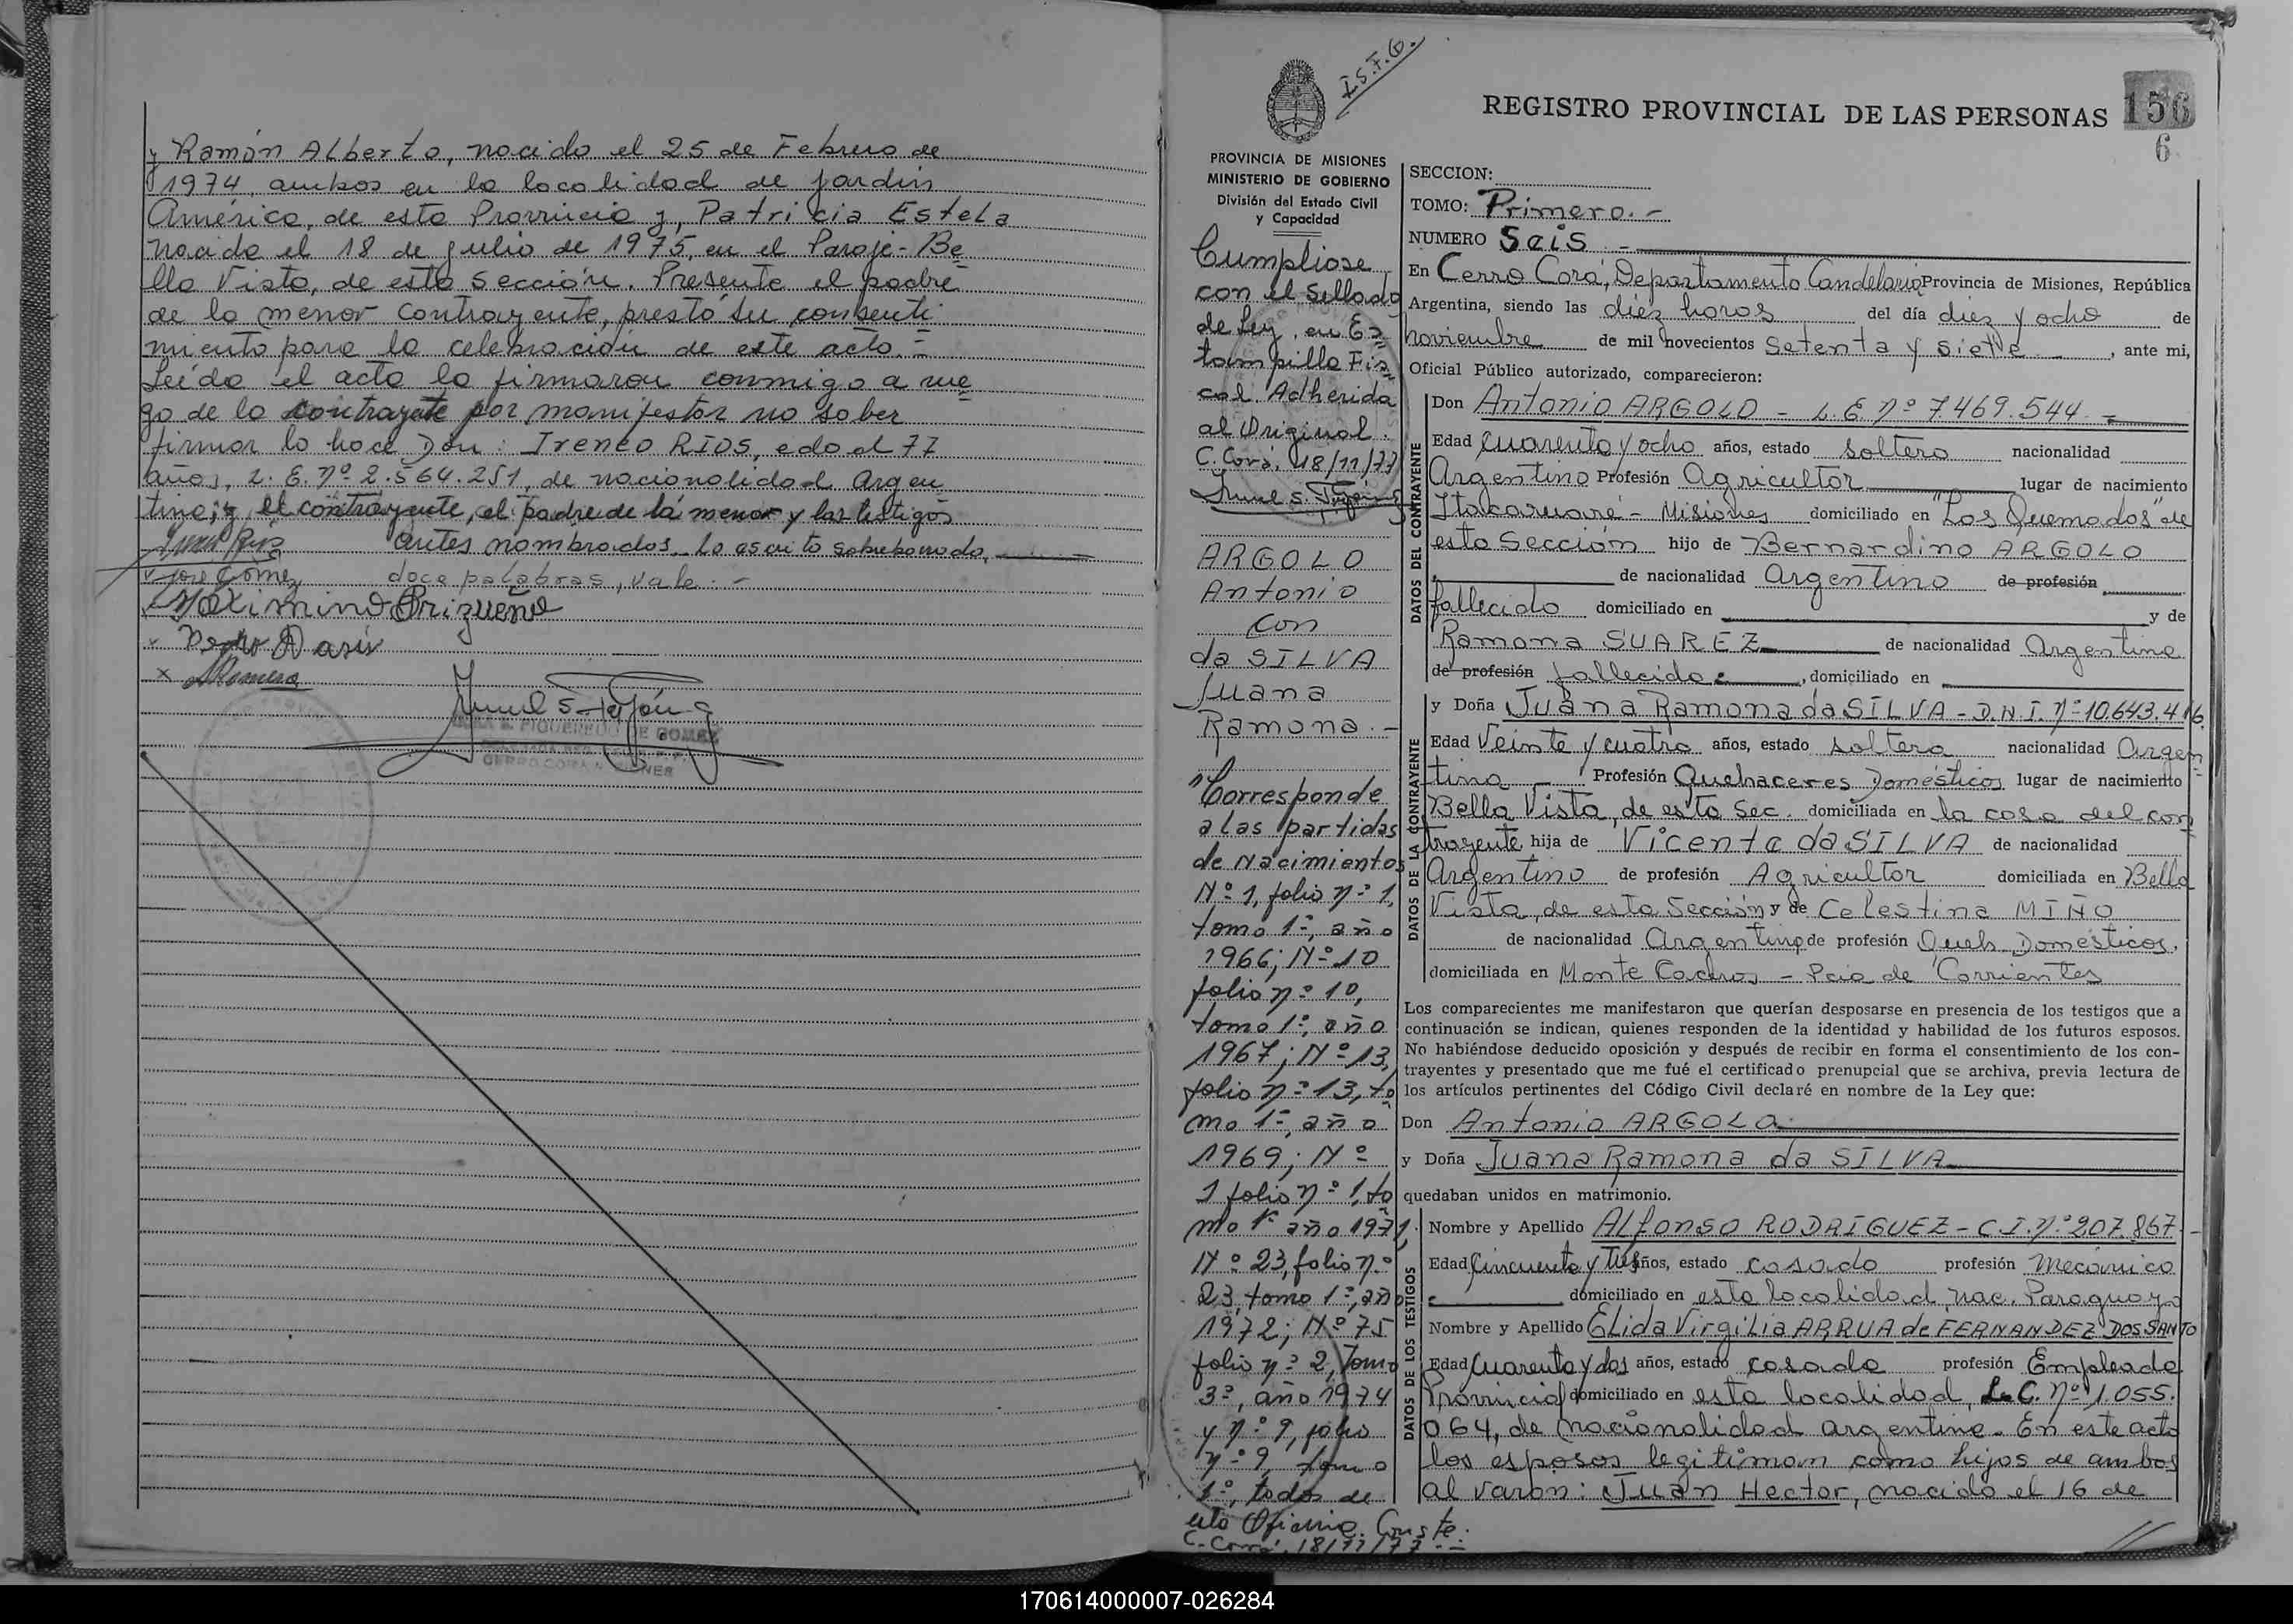 y Ramón Alberto, nacido el 25 de Febrero de
1974, ambos en la localidad de Jardín
América, de esta Provincia y, Patricia Estela
nacida el 18 de Julio de 1975, en el Paraje-Be
lla Vista, de esta Sección. Presente el padre
de la menor contrayente, prestó su consenti
miento para la celebración de este acto.=
Leída el acta la firmaron conmigo a rue
go de la contrayente por manifestar no saber
firmar lo hace Don: Ireneo RIOS, edad 77
años, L.E. Nº 2.564.251, de nacionalidad Argen
tina; y el contrayente, el padre de la menor y los testigos
antes nombrados. Lo escrito sobreborrado,
doce palabras, vale.-
José Gómez
Maximino Brizueña
x Romero
CERRO CORA MISIONES
I.S.F.G.
REGISTRO PROVINCIAL DE LAS PERSONAS 156
6
PROVINCIA DE MISIONES
MINISTERIO DE GOBIERNO
División del Estado Civil
y Capacidad
Cumpliose
con el Sellado
de Ley, en Es
tampilla Fis
cal Adherida
al Original.
C. Corá, 18/11/77
ARGOLO
Antonio
con
da SILVA
Juana
Ramona.-
"Corresponde
a las partidas
de Nacimientos
Nº 1, folio nº 1,
tomo 1º, año
1966; Nº 10
folio nº 10,
tomo 1º, año
1967; Nº 13,
folio nº 13, to
mo 1º, año
1969; Nº
1 folio nº 1, to
mo 1º año 1971,
Nº 23, folio nº
23, tomo 1º, año
1972; Nº 75
folio nº 2, Tomo
3º, año 1974
y nº 9, folio
nº 9, tomo
1º, todos de
esta Oficina. Conste.
C. Corá, 18/11/77
SECCION:
TOMO: Primero.-
NUMERO Seis -
En Cerro Corá, Departamento Candelaria Provincia de Misiones, República
Argentina, siendo las diez horas del día diez y ocho de
noviembre de mil novecientos setenta y siete, ante mi,
Oficial Público autorizado, comparecieron:
DATOS DEL CONTRAYENTE
Don Antonio ARGOLO - L.E. Nº 7.469.544.=
Edad cuarenta y ocho años, estado soltero nacionalidad
Argentino Profesión Agricultor lugar de nacimiento
Itacaruaré - Misiones domiciliado en "Los Quemados" de
esta Sección hijo de Bernardino ARGOLO
de nacionalidad Argentino de profesión
fallecido domiciliado en y de
Ramona SUAREZ de nacionalidad Argentina
de profesión fallecida, domiciliado en
DATOS DE LA CONTRAYENTE
y Doña Juana Ramona da SILVA - D.N.I. Nº 10.643.416.
Edad Veinte y cuatro años, estado soltera nacionalidad Argen
tina - Profesión Quehaceres Domésticos lugar de nacimiento
Bella Vista, de esta Sec. domiciliada en la casa del con
trayente hija de Vicente da SILVA de nacionalidad
Argentino de profesión Agricultor domiciliada en Bella
Vista, de esta Sección y de Celestina MIÑO
de nacionalidad Argentina de profesión Queh. Domésticos.
domiciliada en Monte Caseros - Pcia de Corrientes
Los comparecientes me manifestaron que querían desposarse en presencia de los testigos que a
continuación se indican, quienes responden de la identidad y habilidad de los futuros esposos.
No habiéndose deducido oposición y después de recibir en forma el consentimiento de los con-
trayentes y presentado que me fué el certificado prenupcial que se archiva, previa lectura de
los artículos pertinentes del Código Civil declaré en nombre de la Ley que:
Don Antonio ARGOLO
y Doña Juana Ramona da SILVA
quedaban unidos en matrimonio.
DATOS DE LOS TESTIGOS
Nombre y Apellido Alfonso RODRIGUEZ - C.I. Nº 207.867.-
Edad Cincuenta y tres años, estado casado profesión Mecánico
domiciliado en esta localidad, nac. Paraguayo
Nombre y Apellido Elida Virgilia ARRUA de FERNANDEZ DOS SANTO
Edad Cuarenta y dos años, estado casada profesión Empleada
Provincial domiciliado en esta localidad, L.C. Nº 1.055.
064, de nacionalidad argentina. En este acto
los esposos legitiman como hijos de ambos
al varón: Juan Hector, nacido el 16 de
170614000007-026284